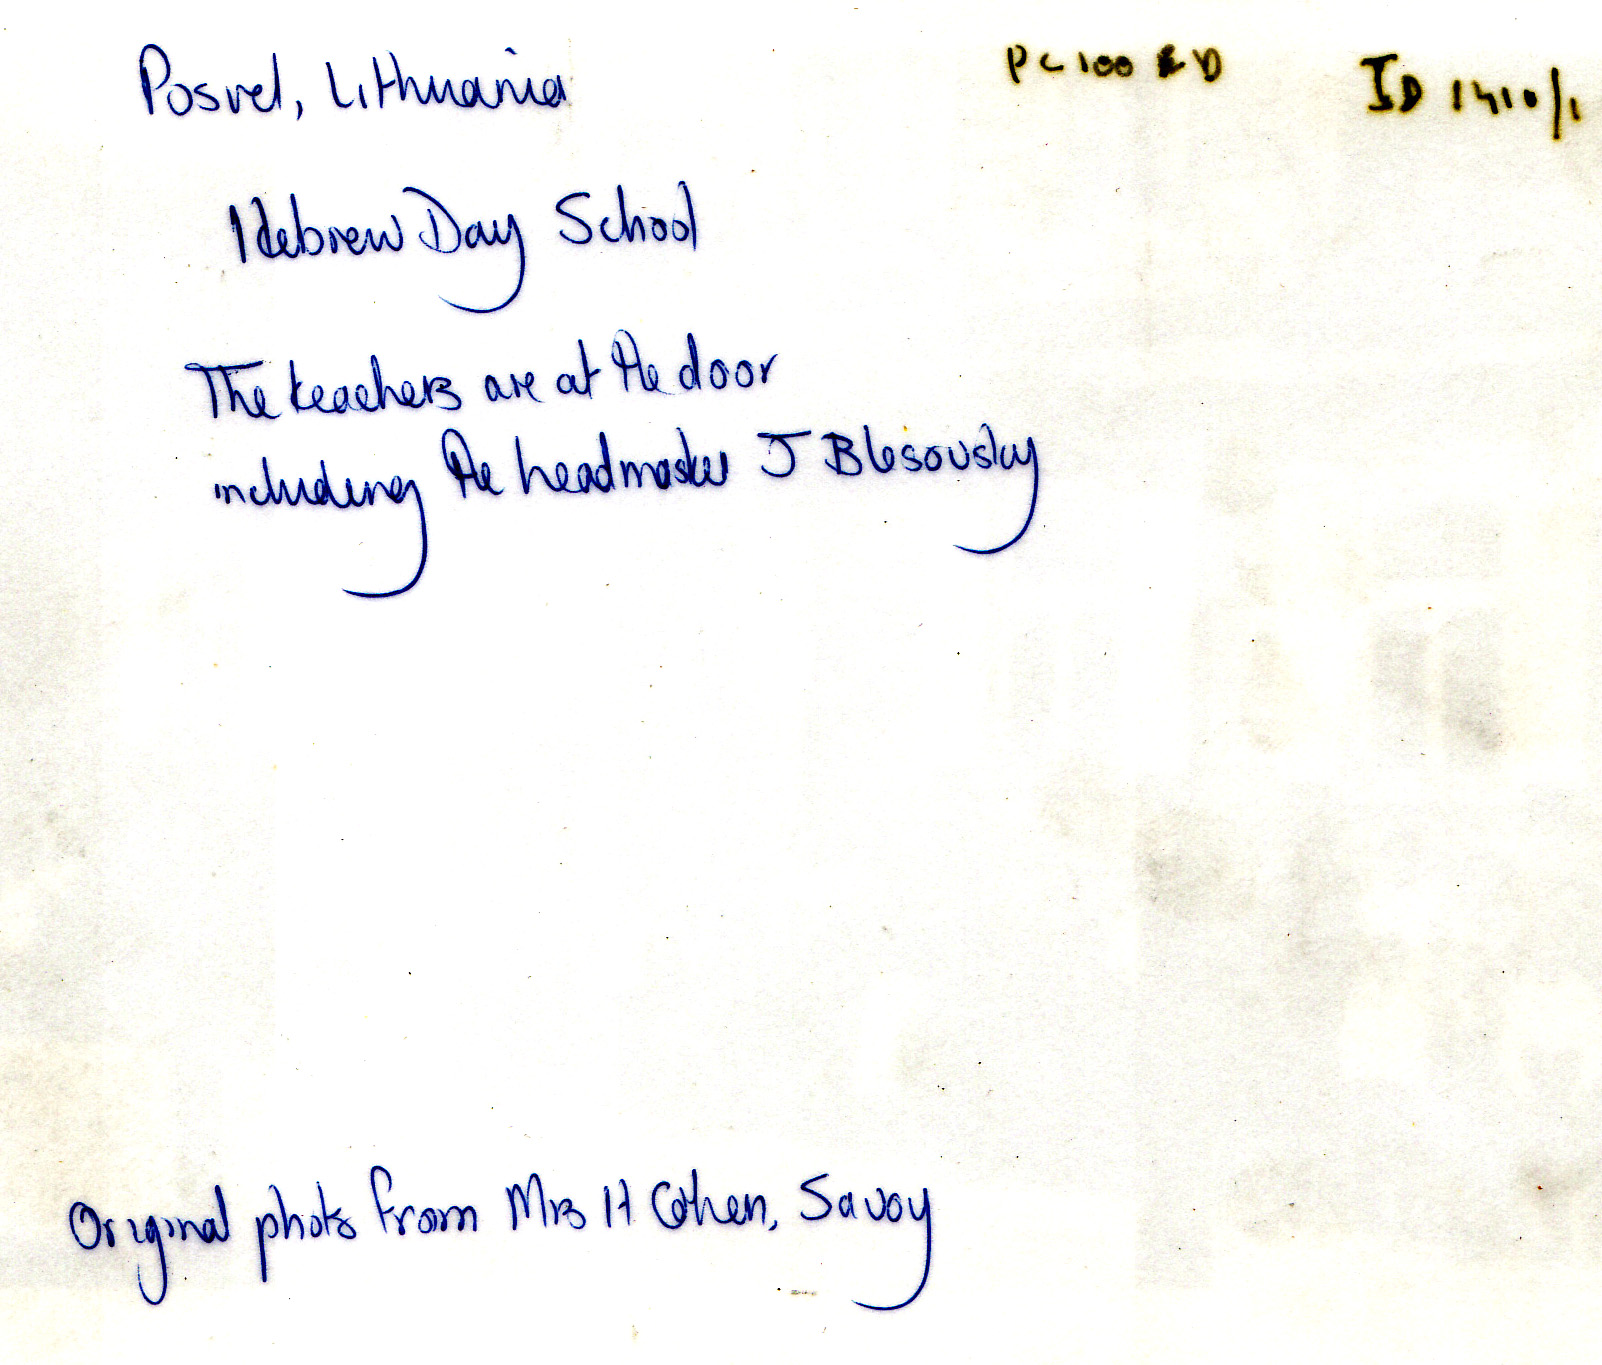 Posvel, Lithuania
ID 1410/1
Hebrew Day School
The teachers are at the door
including the headmaster J Blesovsky
Original photo from Mrs H Cohen, Savoy